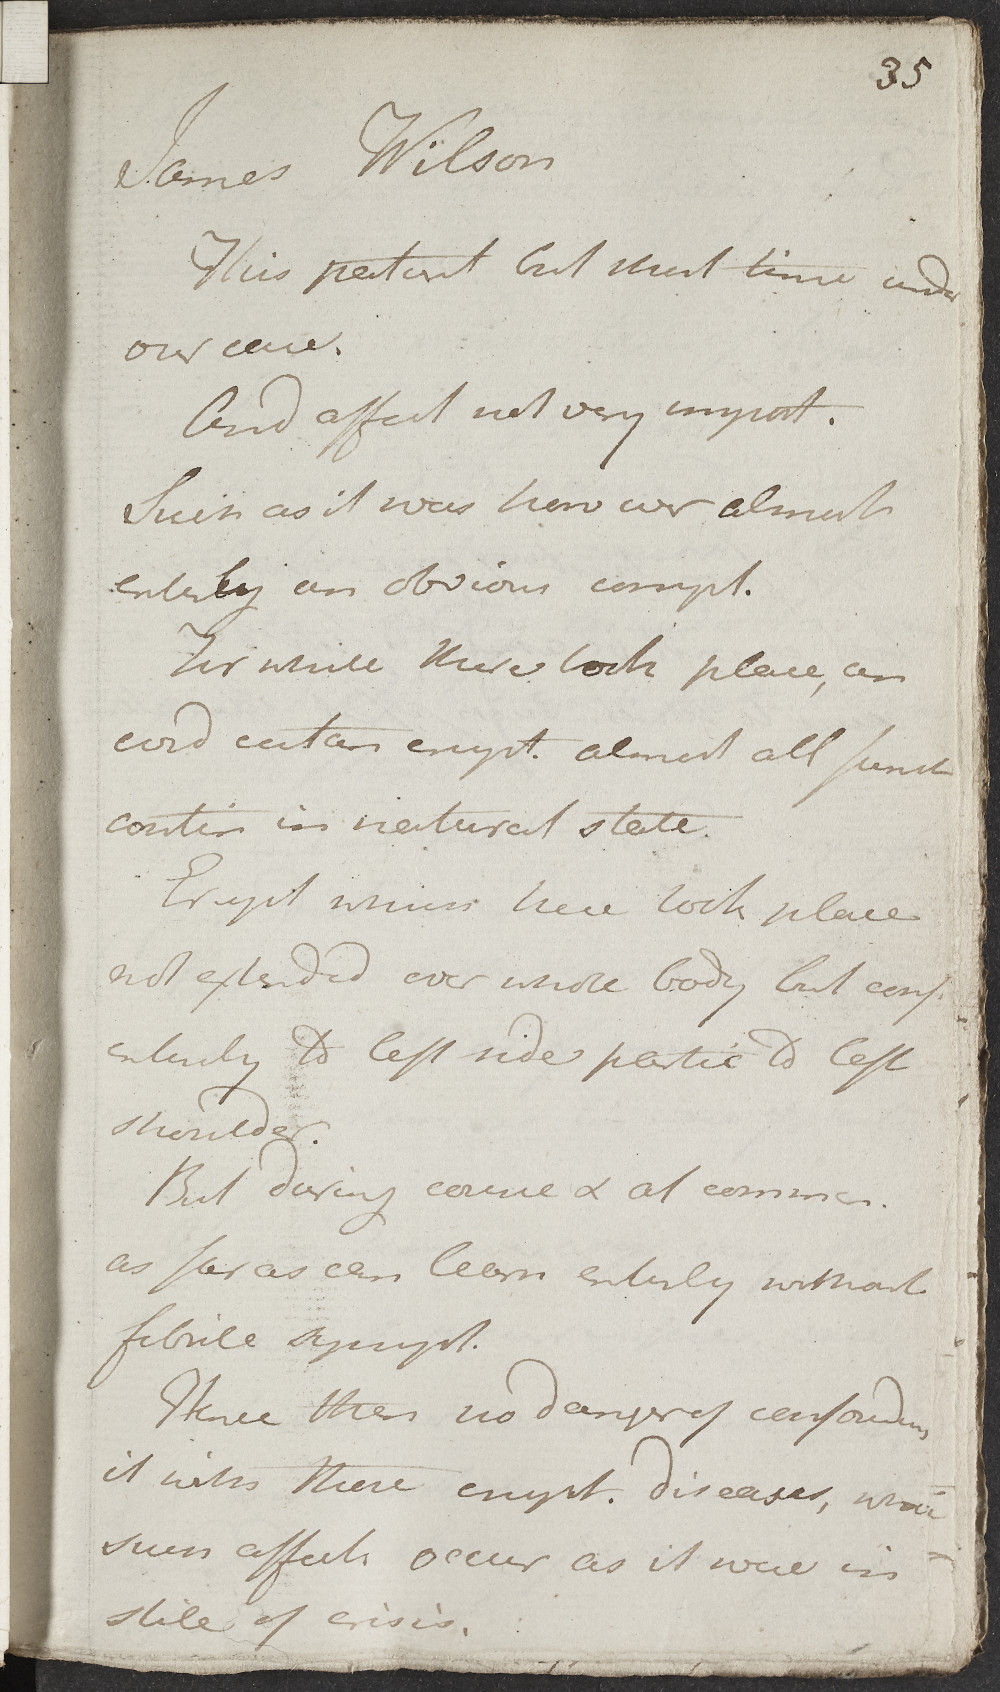 35
James Wilson
This patient but short time under
our care.
And affect not very import.
Such as it was however almost
enterly an obvious compl.
For while there took place, an
evid cutan erupt. almost all funct
contin in natural state.
Erupt which here took place
not extended over whole body but conf.
enterly to left side partic to left
shoulder.
But during course & at commen.
as far as can learn enterly without
febrile sympt.
Hence then no danger of confounding
it with those erupt. diseases, where
such affects occur as it were in
stile of crisis.